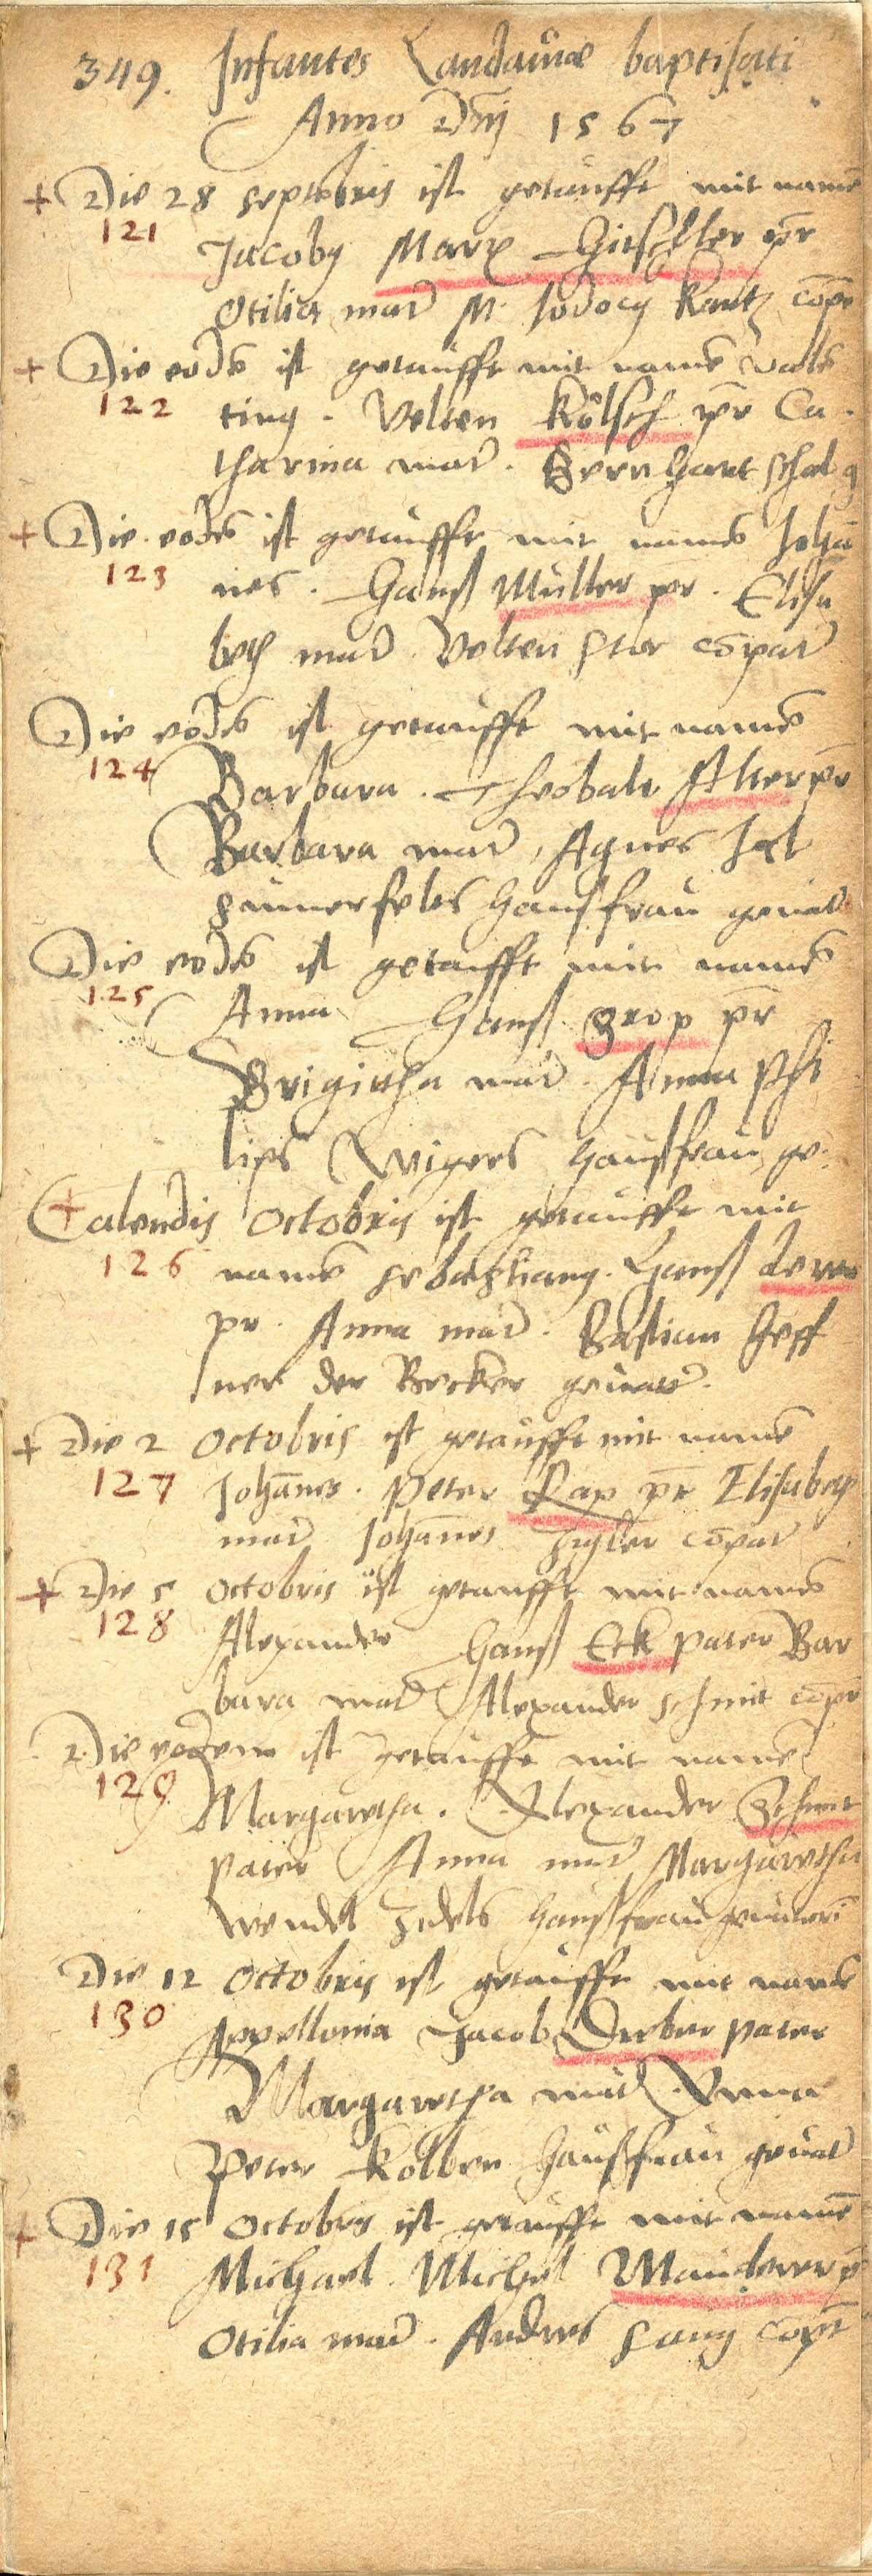 349. Infantes Landauiae baptisati
Anno Dnj 1567
+ Die 28 septebris ist getaufft mit namē
121 Jacoby Marx Hirschler pr̄
Otilia mad M. Jodocy Kautz cōpr
+ Die eodē ist getaufft mit namē valē
122 tiny. Velten Kölsch pr̄ Ca
tharina mad. Bernhart schal g
+ Die eodē ist getaufft mit namē Johā
123 nes. Hanß Müller pr̄. Elisa
beth mad Velten cōpad
Die eodē ist getaufft mit namē
124 Barbara. Theobalt Alter pr̄
Barbara mad, Agnes
haußfrau geuad
Die eodē ist getaufft mit namē
125 Anna Hanß Zrop pr̄
Brigittha mad. Anna Phi
lips Wigers haußfrau ge
+ Calendis Octobris ist getaufft mit
126 namē sebastiany. Hanß
pr. Anna mad. Bastian Heff
ner der Becker geuatter
+ Die 2 Octobris ist getaufft mit namē
127 Johānes. Peter Rap pr̄ Elisabeth
mad Johānes Zigler cōpad
+ Die 5 Octobris ist getaufft mit namē
128 Alexander Hanß Eck pater Bar
bara mad Alexander schmit cōpr
Die eodem ist getaufft mit namē
129 Margaretha. Alexander Schmit
pater Anna mad Margaretha
Wendel Zidels haußfrau geuatteri
Die 12 Octobris ist getaufft mit namē
130 Appellonia Jacob Derber pater
Margaretha mad Anna
Peter Kolben haußfrau geuad
+ Die 15 Octobris ist getaufft mit namē
131 Michael. Michel Mauderer p̄
Otilia mad. Andres Lang cōpr